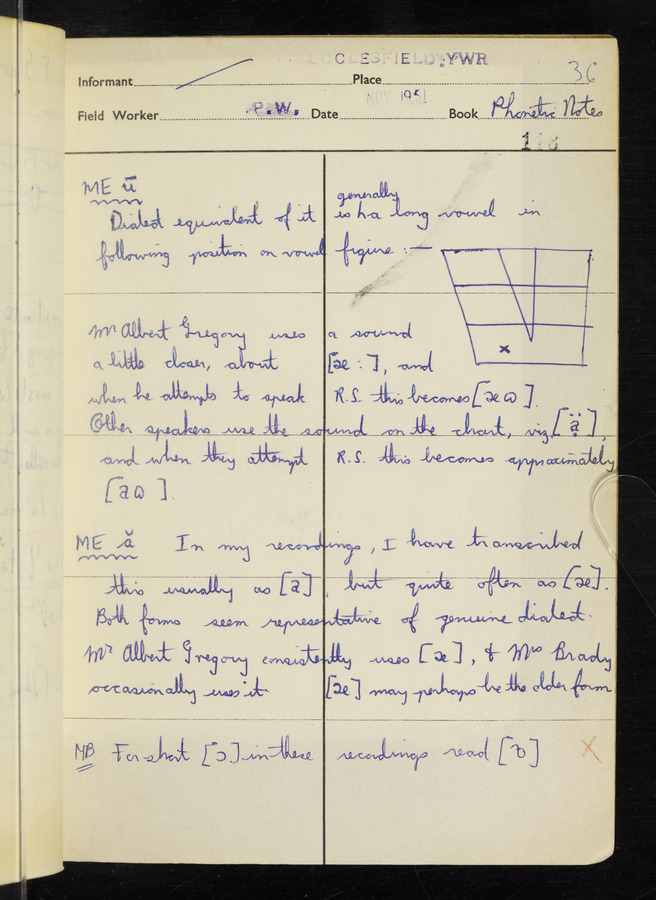 ECCLESFIELD, YWR
Informant Place 36
Field Worker P.W. Date NOV 195 Book Phonetic Notes
118
ME ū
generally
Dialect equivalent of it is ha long vowel in
following position on vowel figure :—
Mr Albert Gregory uses a sound
a little closer, about [æ:], and
when he attempts to speak R.S. this becomes [æɷ].
Other speakers use the sound on the chart, viz [ạ̈],
and when they attempt R.S. this becomes approximately
[aɷ].
ME ă In my recordings, I have transcribed
this usually as [a], but quite often as [æ].
Both forms seem representative of genuine dialect.
Mr Albert Gregory consistently uses [æ], & Mrs Brady
occasionally uses it [æ] may perhaps be the older form
NB For short [ɔ] in these recordings read [ɒ] X